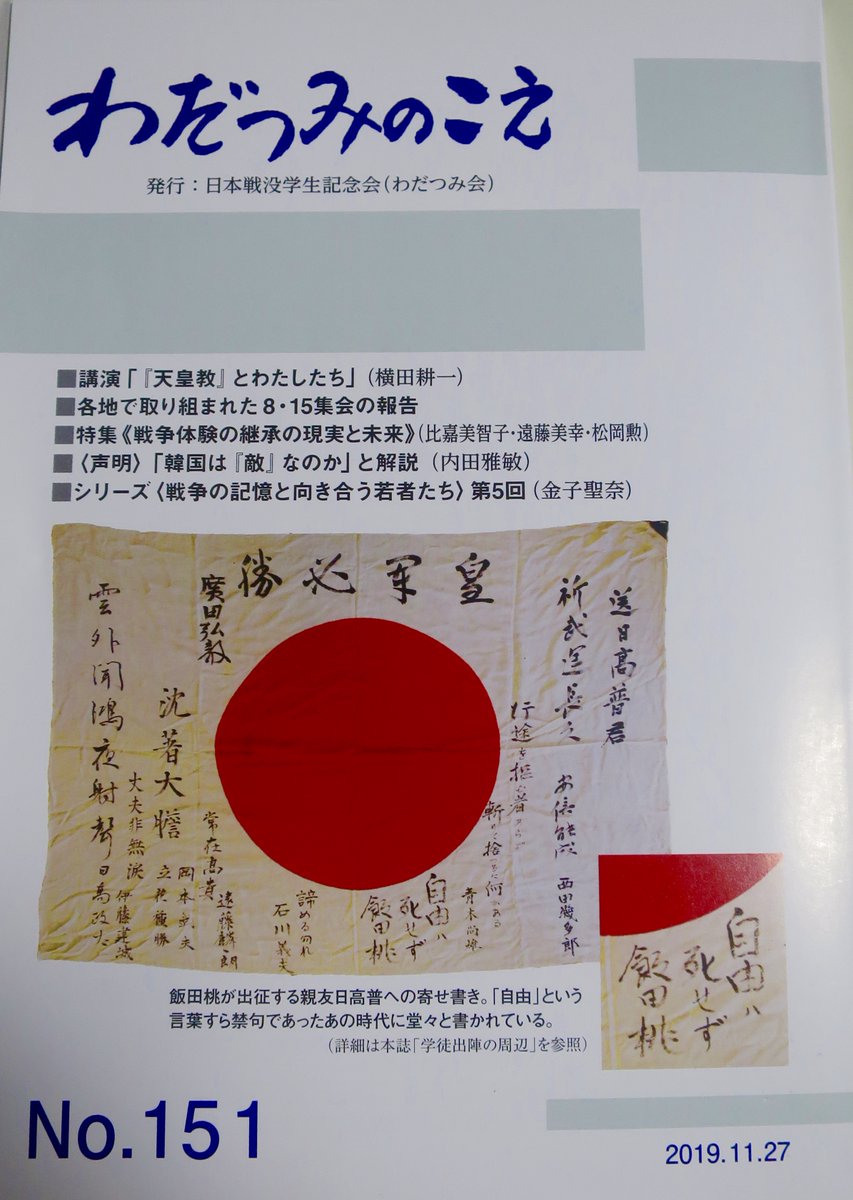 わだつみのこえ
発行：日本戦没学生記念会（わだつみ会）
■講演「『天皇教』とわたしたち」（横田耕一）
■各地で取り組まれた８・15集会の報告
■特集《戦争体験の継承の現実と未来》（比嘉美智子・遠藤美幸・松岡勲）
■〈声明〉「韓国は『敵』なのか」と解説（内田雅敏）
■シリーズ〈戦争の記憶と向き合う若者たち〉第5回（金子聖奈）
皇軍必勝
送日高普君
祈武運長久
安倍能成
西田幾多郎
青木
自由ハ
死せず
飯田桃
諦める勿れ
石川義夫
廣田弘毅
常在高貴
遠藤麟一朗
沈著大膽
丈夫非無涙
伊藤
雲外聞鴻夜射聲
自由ハ
死せず
飯田桃
飯田桃が出征する親友日高普への寄せ書き。「自由」という
言葉すら禁句であったあの時代に堂々と書かれている。
（詳細は本誌「学徒出陣の周辺」を参照）
No.151
2019.11.27